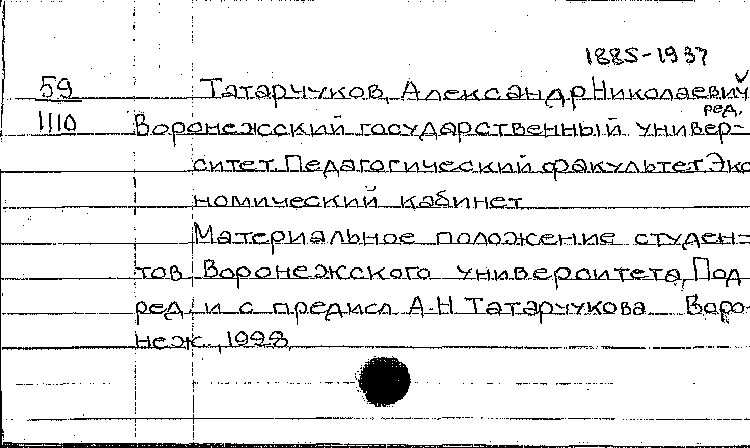 1885-1937
59 Татарчуков, Александр Николаевич
ред.
1110 Воронежский государственный универ-
ситет. Педагогический факультет. Эко
номический кабинет
Материальное положение студен-
тов Воронежского университета, Под
ред. и с предисл А.Н. Татарчукова Воро-
неж.,